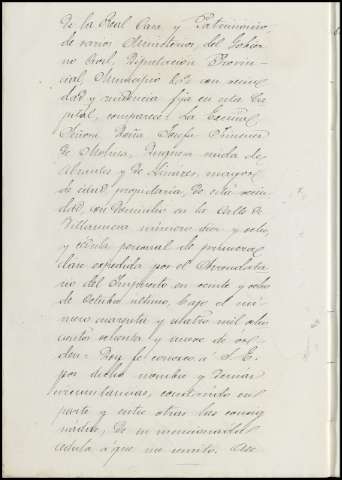 de la Real Casa y Patrimonio,
de varios Ministerios, del Gobier
no Civil, Diputacion Provin-
cial, Municipio &ª con vecin
dad y residencia fija en esta Ca
pital, comparece: La Excma.
Señora Doña Josefa Jimenez
de Molina, Duquesa viuda de
Abrantes y de Linares, mayor
de edad, propietaria, de esta vecin
dad, con domicilio en la Calle de
Villanueva número diez y ocho,
y cédula personal de primera
clase expedida por el Arrendata
rio del Impuesto en veinte y ocho
de Octubre último, bajo el nú-
mero cuarenta y cuatro mil ocho
cientos ochenta y nueve de or-
den: Doy fe conozco á S. E.
por dicho nombre y demas
circunstancias, constando en
parte y entre otras las consig
nadas, de su mencionada
cédula á que me remito. Ase